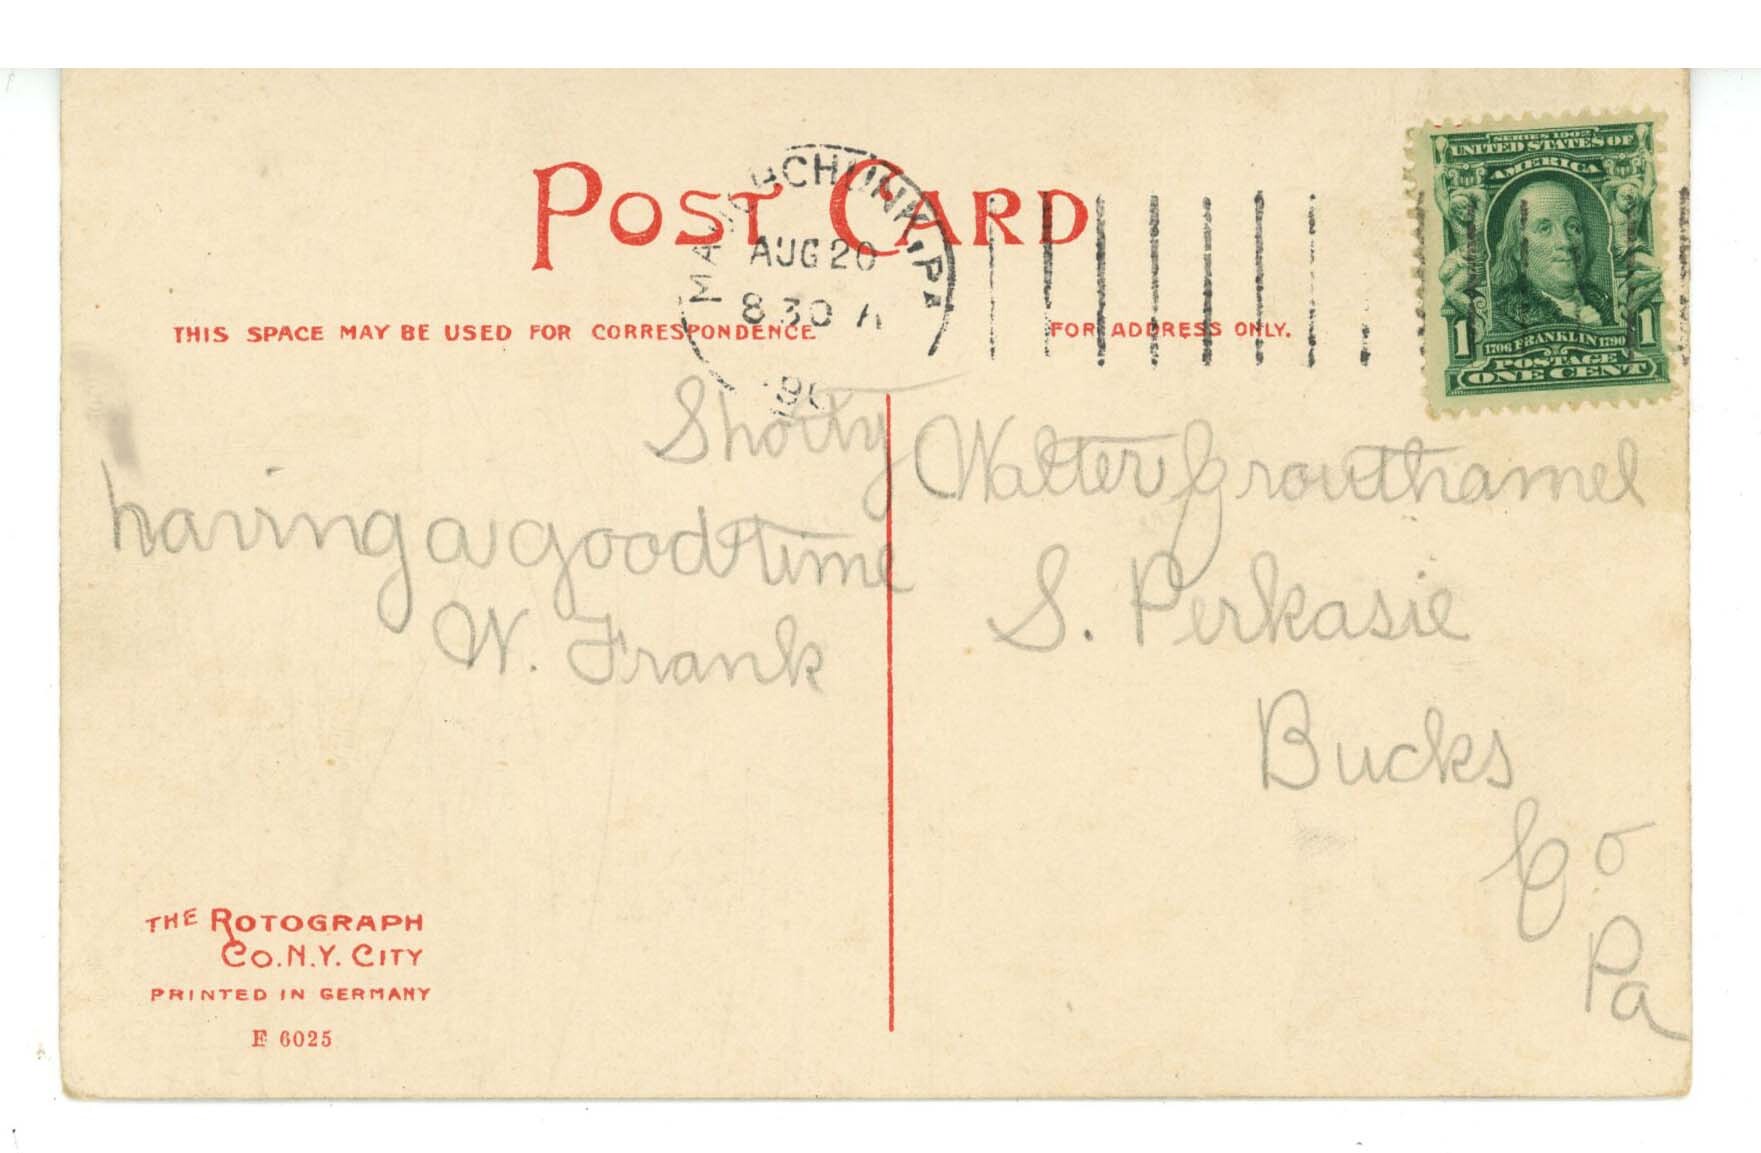 POST CARD
MAUCH CHUNK, PA.
AUG 20
8 30 A
THIS SPACE MAY BE USED FOR CORRESPONDENCE
FOR ADDRESS ONLY.
SERIES 1902
UNITED STATES OF
AMERICA
1706 FRANKLIN 1790
1 1
POSTAGE
ONE CENT
Shorty
having a good time
W. Frank
Walter Grouthamel
S. Perkasie
Bucks
Co
Pa
THE ROTOGRAPH
CO. N.Y. CITY
PRINTED IN GERMANY
E 6025